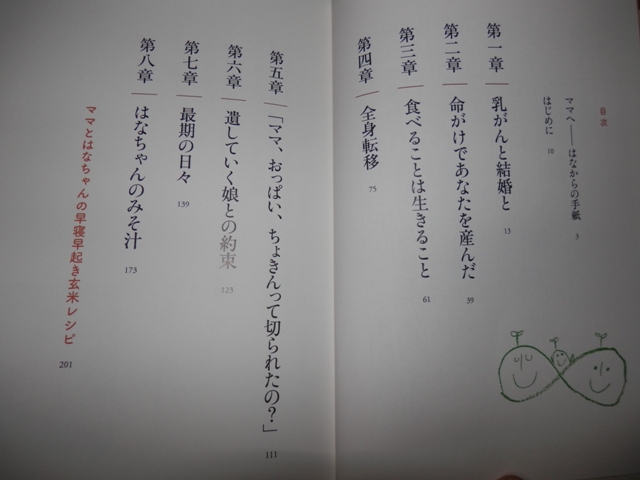 目次
ママへ——はなからの手紙 3
はじめに 10
第一章 乳がんと結婚と 13
第二章 命がけであなたを産んだ 39
第三章 食べることは生きること 61
第四章 全身転移 75
第五章 「ママ、おっぱい、ちょきんって切られたの？」 111
第六章 遺していく娘との約束 123
第七章 最期の日々 139
第八章 はなちゃんのみそ汁 173
ママとはなちゃんの早寝早起き玄米レシピ 201